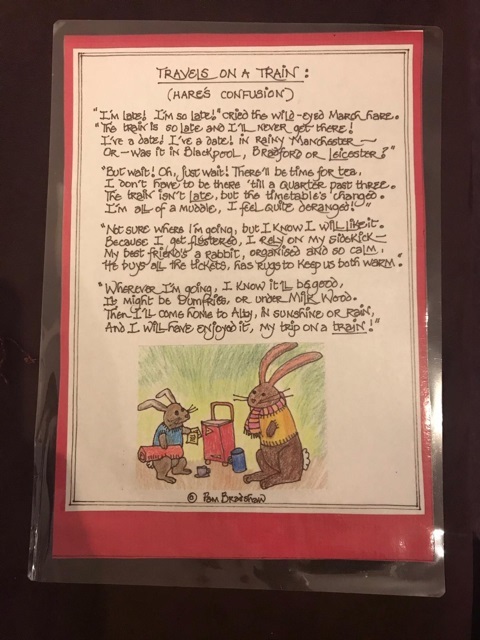 TRAVELS ON A TRAIN:
(HARE'S CONFUSION)
"I'm late! I'm so late!" cried the wild-eyed March hare.
"The train is so late and I'll never get there!
I've a date! I've a date! in rainy Manchester—
Or—was it in Blackpool, Bradford or Leicester?"
"But wait! Oh, just wait! There'll be time for tea,
I don't have to be there 'till a quarter past three.
The train isn't late, but the timetable's changed.
I'm all of a muddle, I feel quite deranged!"
"Not sure where I'm going, but I know I will like it.
Because I get flustered, I rely on my sidekick—
My best friend's a rabbit, organised and so calm,
He buys all the tickets, has rugs to keep us both warm."
"Wherever I'm going, I know it'll be good,
It might be Dumfries, or under Milk Wood.
Then I'll come home to Alby, in sunshine or rain,
And I will have enjoyed it, my trip on a train!"
© Pam Bradshaw